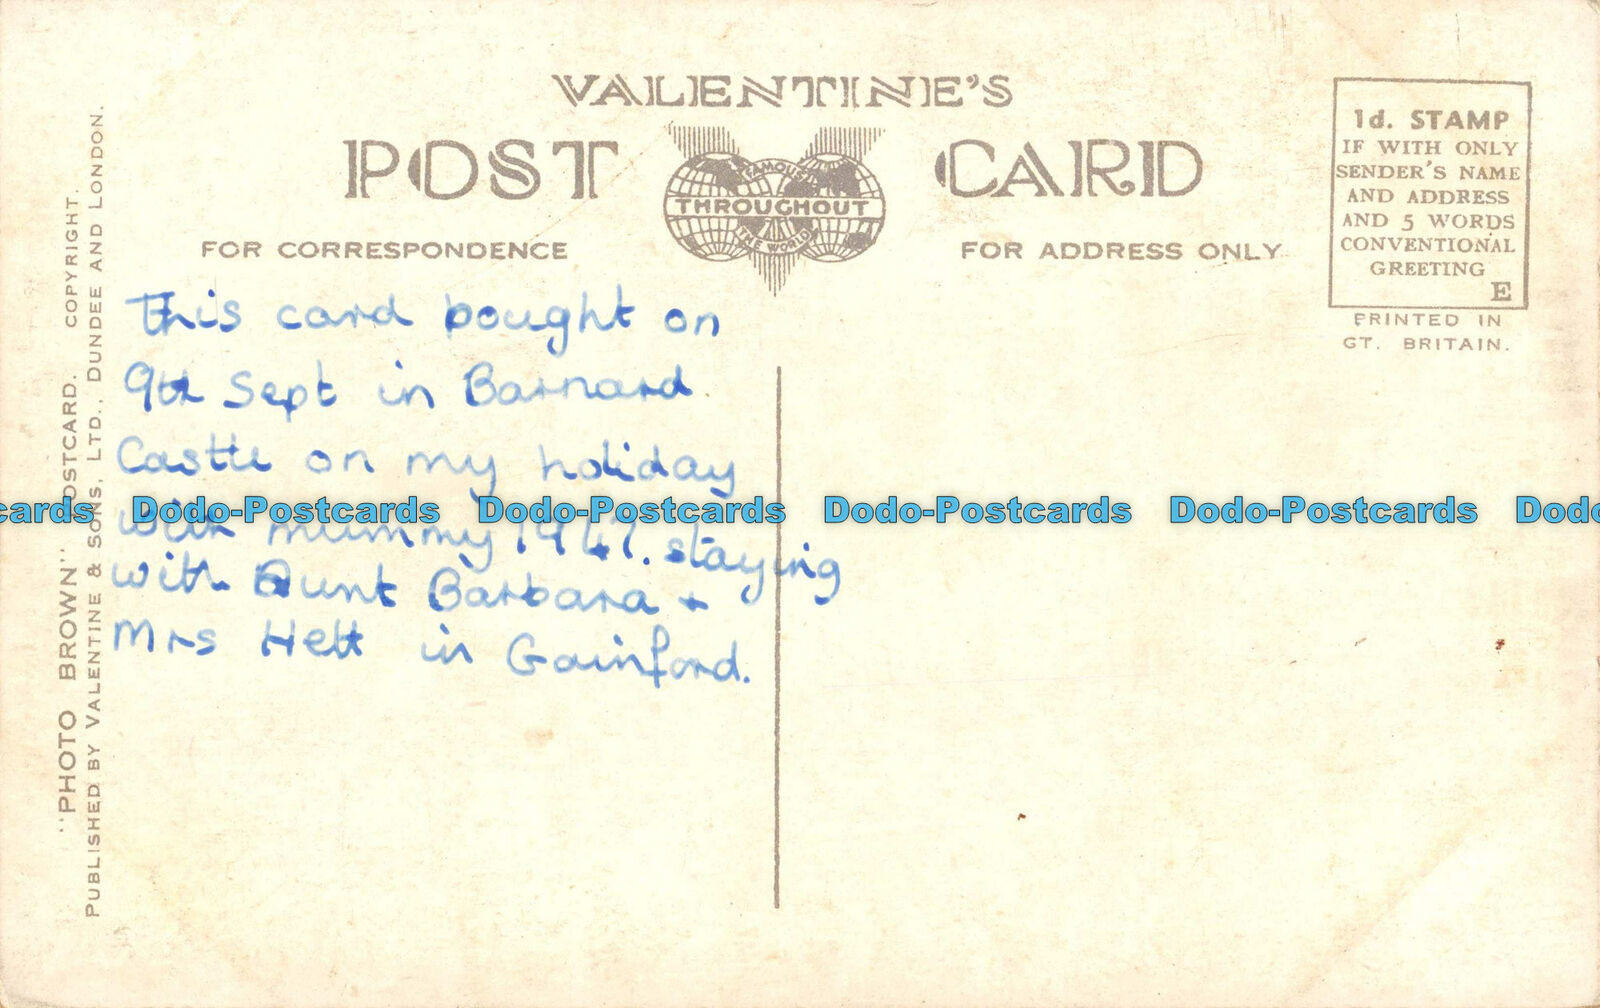 VALENTINE'S
POST CARD
FAMOUS
THROUGHOUT
THE WORLD
FOR CORRESPONDENCE
FOR ADDRESS ONLY
1d. STAMP
IF WITH ONLY
SENDER'S NAME
AND ADDRESS
AND 5 WORDS
CONVENTIONAL
GREETING
E
PRINTED IN
GT. BRITAIN.
"PHOTO BROWN" POSTCARD. COPYRIGHT.
PUBLISHED BY VALENTINE & SONS, LTD., DUNDEE AND LONDON.
This card bought on
9th Sept in Barnard
Castle on my holiday
with mummy 1947. staying
with Aunt Barbara +
Mrs Helt in Gainford.
cards Dodo-Postcards Dodo-Postcards Dodo-Postcards Dodo-Postcards Dodo